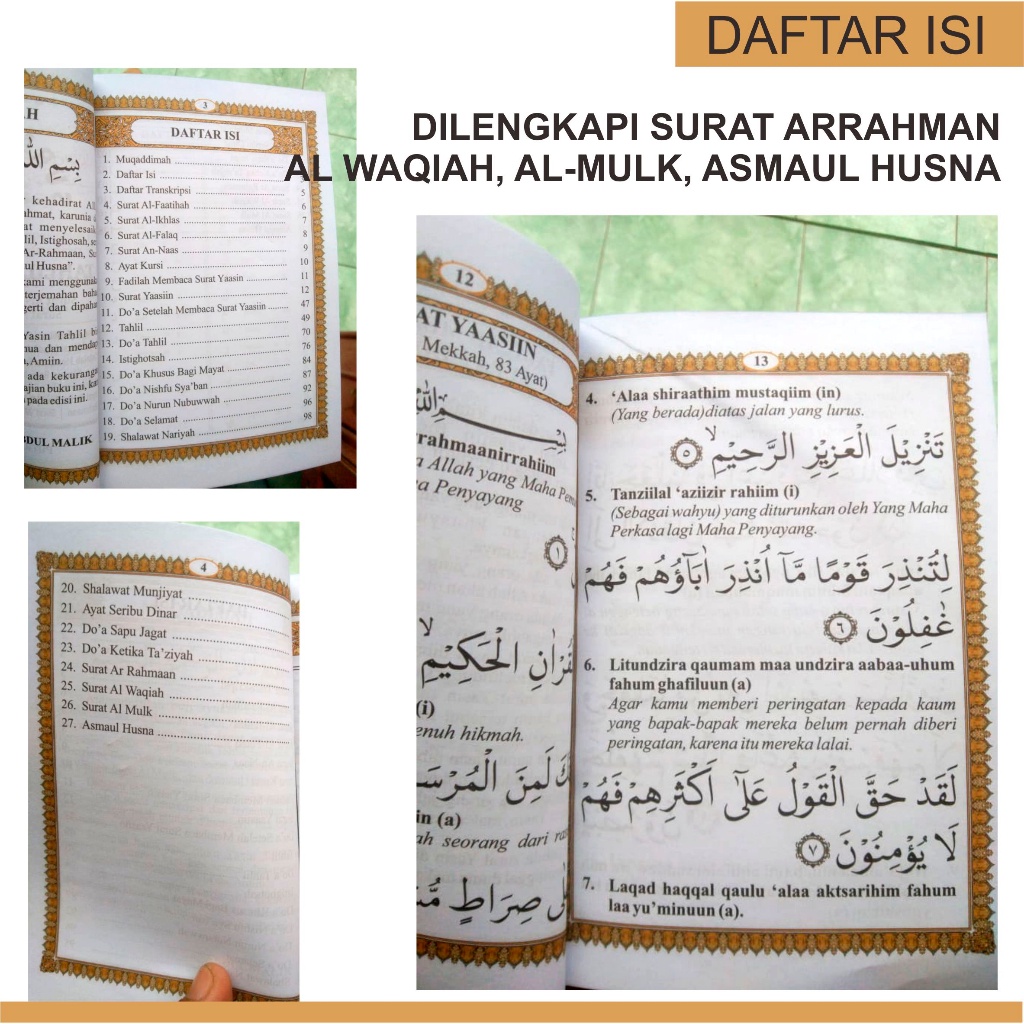 DAFTAR ISI
DILENGKAPI SURAT ARRAHMAN
AL WAQIAH, AL-MULK, ASMAUL HUSNA
بِسْمِ اللّٰهِ
kehadirat
ahmat, karunia
at menyelesaik
lil, Istighosah, se
Ar-Rahmaan, Su
ul Husna”.
kami menggunak
terjemahan baha
gerti dan dipaha
Yasin Tahlil bi
nua dan mendap
, Amiin.
ada kekuranga
ajian buku ini, kar
pada edisi ini.
BDUL MALIK
3
DAFTAR ISI
1. Muqaddimah
2. Daftar Isi
3. Daftar Transkripsi 5
4. Surat Al-Faatihah 6
5. Surat Al-Ikhlas 7
6. Surat Al-Falaq 8
7. Surat An-Naas 9
8. Ayat Kursi 10
9. Fadilah Membaca Surat Yaasin 11
10. Surat Yaasiin 12
11. Do’a Setelah Membaca Surat Yaasiin 47
12. Tahlil 49
13. Do’a Tahlil 70
14. Istighotsah 76
15. Do’a Khusus Bagi Mayat 84
16. Do’a Nishfu Sya’ban 87
17. Do’a Nurun Nubuwwah 92
18. Do’a Selamat 96
19. Shalawat Nariyah 98
4
20. Shalawat Munjiyat
21. Ayat Seribu Dinar
22. Do’a Sapu Jagat
23. Do’a Ketika Ta’ziyah
24. Surat Ar Rahmaan
25. Surat Al Waqiah
26. Surat Al Mulk
27. Asmaul Husna
12
AT YAASIIN
Mekkah, 83 Ayat)
rrahmaanirrahiim
a Allah yang Maha Pem
a Penyayang
١
الْحَكِيْمِ
(i)
enuh hikmah.
لَمِنَ الْمُرْسَ
in (a)
ah seorang dari ras
صِرَاطٍ
13
4. ‘Alaa shiraathim mustaqiim (in)
(Yang berada)diatas jalan yang lurus.
تَنْزِيْلَ الْعَزِيْزِ الرَّحِيْمِۙ ٥
5. Tanziilal ‘aziizir rahiim (i)
(Sebagai wahyu) yang diturunkan oleh Yang Maha
Perkasa lagi Maha Penyayang.
لِتُنْذِرَ قَوْمًا مَّآ اُنْذِرَ اٰبَاۤؤُهُمْ فَهُمْ
غٰفِلُوْنَ ٦
6. Litundzira qaumam maa undzira aabaa-uhum
fahum ghafiluun (a)
Agar kamu memberi peringatan kepada kaum
yang bapak-bapak mereka belum pernah diberi
peringatan, karena itu mereka lalai.
لَقَدْ حَقَّ الْقَوْلُ عَلٰٓى اَكْثَرِهِمْ فَهُمْ
لَا يُؤْمِنُوْنَ ٧
7. Laqad haqqal qaulu ‘alaa aktsarihim fahum
laa yu’minuun (a).